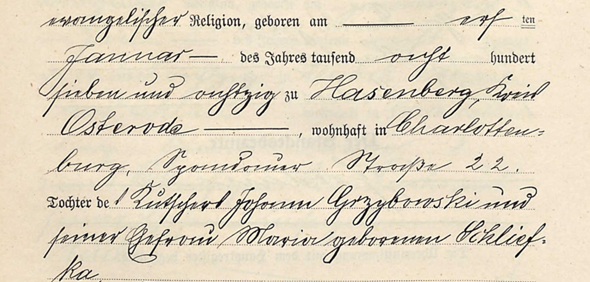 evangelischer Religion, geboren am ——— elf ten
Januar — des Jahres tausend acht hundert
sieben und achtzig zu Hasenberg, Kreis
Osterode ———, wohnhaft in Charlotten-
burg, Spandauer Straße 22.
Tochter des Kutschers Johann Grzybowski und
seiner Ehefrau Maria geborenen Schlief-
ka.